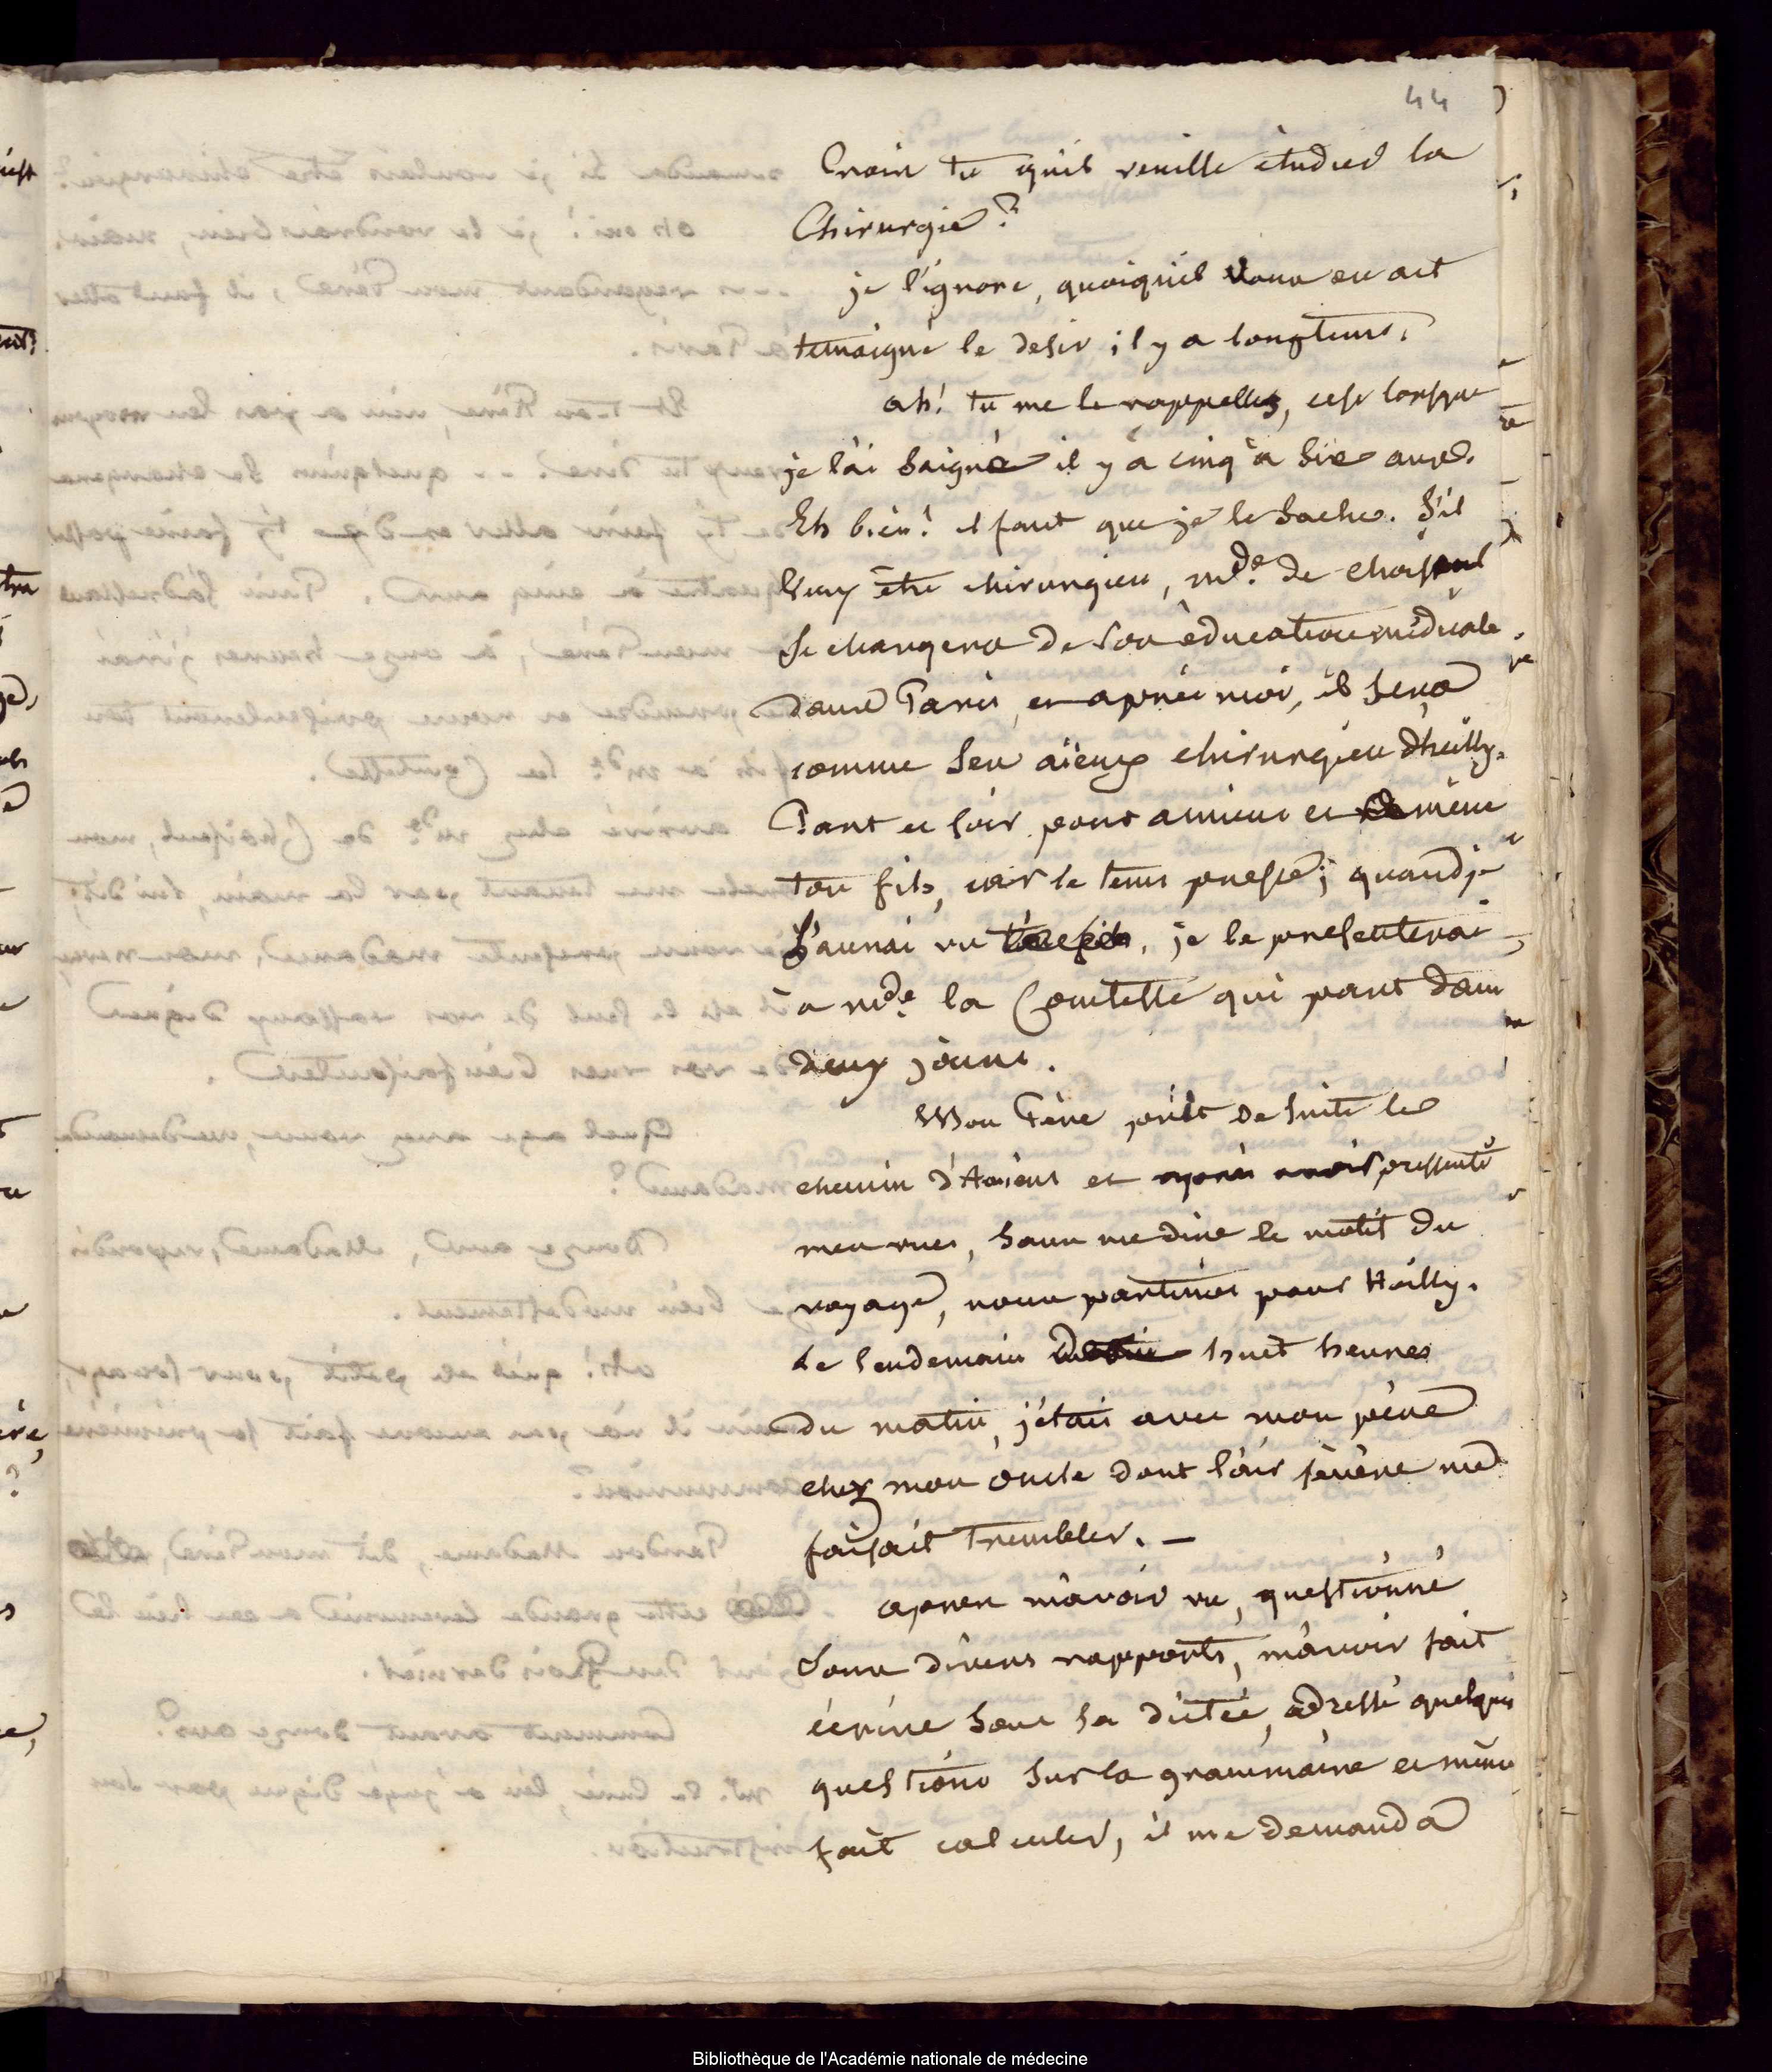 44
Crois tu qu'il veuille étudier la
Chirurgie?
je l'ignore, quoiqu'il vous en ait
temoigné le desir il y a longtems.
ah! tu me le rappelles, c'est lorsque
je l'ai saigné il y a cinq à six ans.
Eh bien! il faut que je le sache. S'il
veux être chirurgien, mde. de choiseul
se chargera de son éducation médicale
dans Paris, et après moi, il sera
comme ses aïeux chirurgien d'heilly.
Pars ce soir pour amiens et ramène
ton fils, car le tems presse; quand je
l'aurai vu, je le presenterai
à mde. la Comtesse qui part dans
deux jours.
Mon Père prit de suite le
chemin d'Amiens et après avoir pressenti
mes vues, sans me dire le motif du
voyage, nous partimes pour Heilly.
Le lendemain huit heures
du matin, j'étais avec mon père
chez mon oncle dont l'air sévère me
faisait trembler. —
après m'avoir vu, questionné
sous divers rapports, m'avoir fait
écrire sous sa dictée, adressé quelques
questions sur la grammaire et même
fait calculer, il me demanda
Bibliothèque de l'Académie nationale de médecine